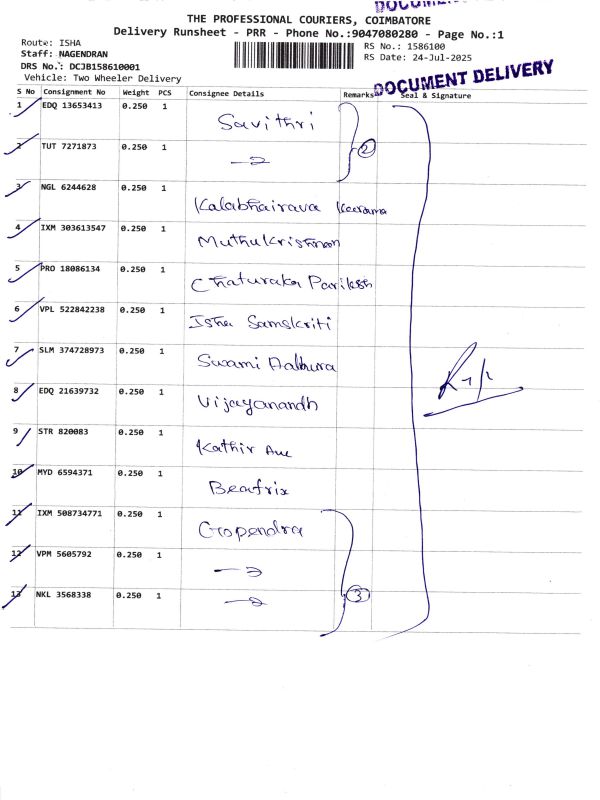 DOCUMENT DELIVERY
THE PROFESSIONAL COURIERS, COIMBATORE
Delivery Runsheet - PRR - Phone No.:9047080280 - Page No.:1
Route: ISHA
Staff: NAGENDRAN
DRS No.: DCJB158610001
Vehicle: Two Wheeler Delivery
RS No.: 1586100
RS Date: 24-Jul-2025
S No Consignment No Weight PCS Consignee Details Remarks Seal & Signature
1 EDQ 13653413 0.250 1 Savithri
2 TUT 7271873 0.250 1 2
3 NGL 6244628 0.250 1 Kalabhairava
4 IXM 303613547 0.250 1 Muthukrishnan
5 PRO 18086134 0.250 1 Chaturaka Pariksh
6 VPL 522842238 0.250 1 Isha Samskriti
7 SLM 374728973 0.250 1 Swami
8 EDQ 21639732 0.250 1 Vijayanandh
9 STR 820083 0.250 1 Kathir
10 MYD 6594371 0.250 1 Beatrix
11 IXM 508734771 0.250 1 Gopendra
12 VPM 5605792 0.250 1
13 NKL 3568338 0.250 1 3